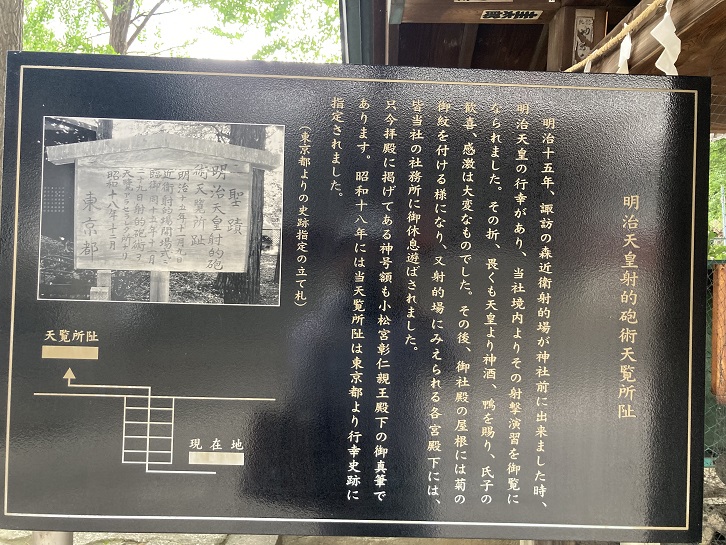 明治天皇射的砲術天覧所址
明治十五年、諏訪の森近衛射的場が神社前に出来ました時、
明治天皇の行幸があり、当社境内よりその射撃演習を御覧に
なられました。その折、畏くも天皇より神酒、鴨を賜り、氏子の
歓喜、感激は大変なものでした。その後、御社殿の屋根には菊の
御紋を付ける様になり、又射的場にみえられる各宮殿下には、
皆当社の社務所に御休息遊ばされました。
只今拝殿に掲げてある神号額も小松宮彰仁親王殿下の御真筆で
あります。昭和十八年には当天覧所址は東京都より行幸史跡に
指定されました。
(東京都よりの史跡指定の立て札)
聖蹟
明治天皇射的砲
術天覧所址
明治十五年十一月九日
近衛射的場開場式
昭和十八年十二月
東京都
天覧所址
現在地